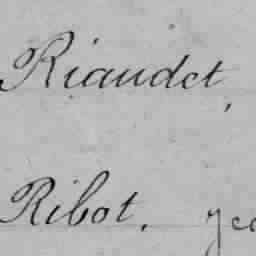 Riaudet,
Ribot.